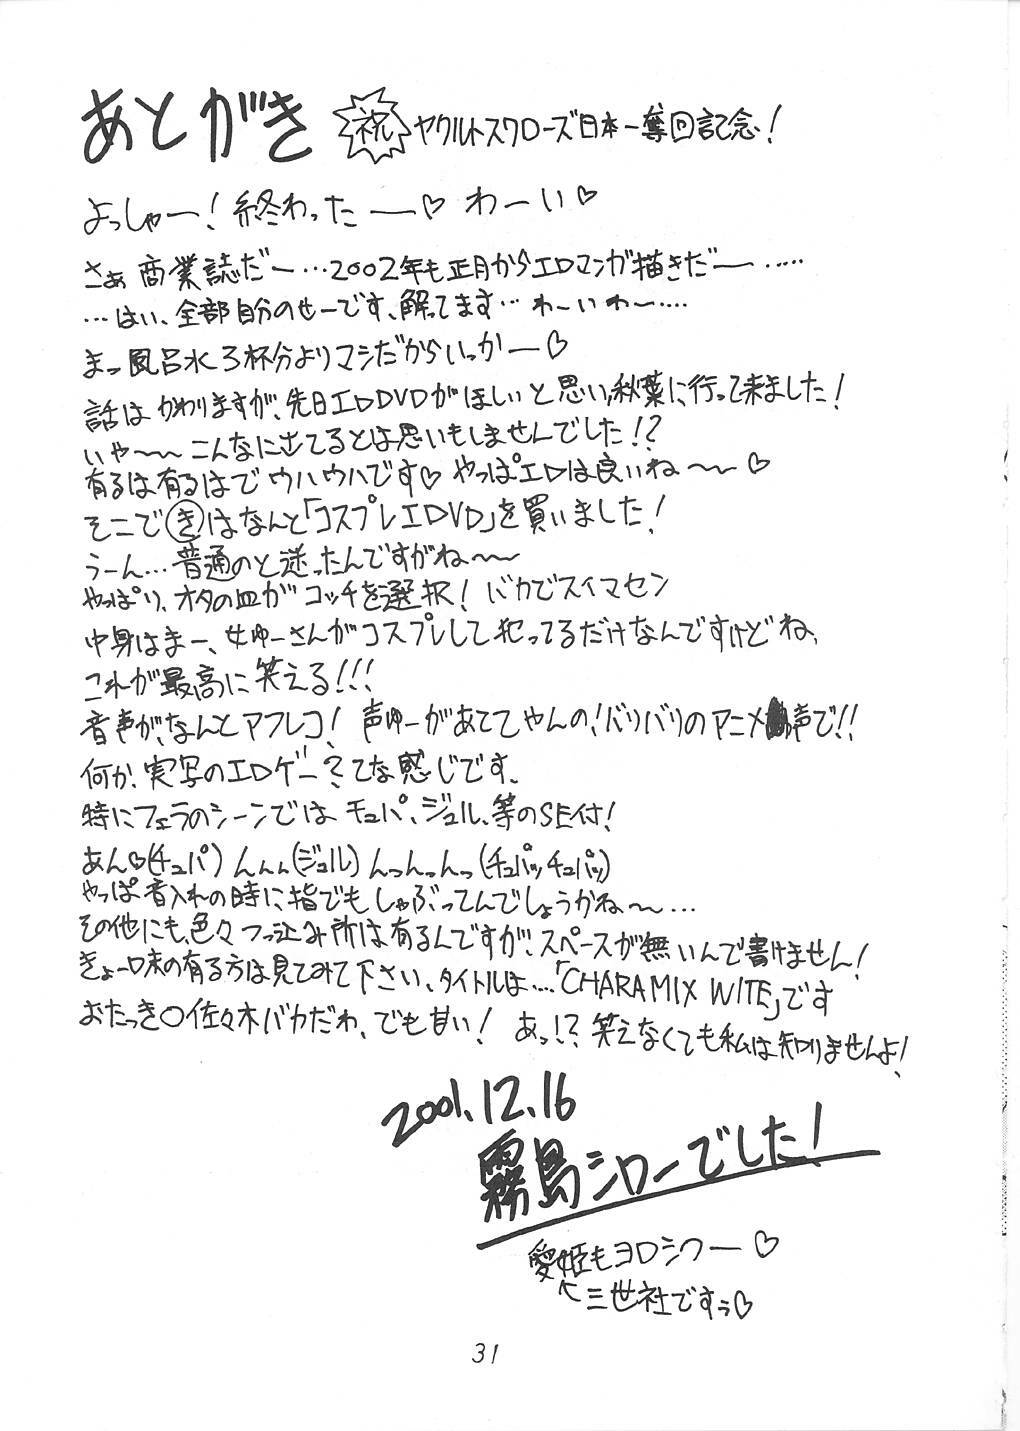 あとがき 祝 ヤクルトスワローズ日本一奪回記念!
よっしゃー!終わったー♡わーい♡
さぁ商業誌だー…2002年も正月からエロマンガ描きだー……
…はい、全部自分のせーです、解ってます…わーいわー……
まっ風呂水3杯分よりマシだからいっかー♡
話はかわりますが、先日エロDVDがほしいと思い、秋葉に行って来ました!
いや〜〜こんなにさてるとは思いもしませんでした!?
有るは有るはでウハウハです♡やっぱエロは良いね〜〜♡
そこできはなんと「コスプレエロDVD」を買いました!
うーん…普通のと迷ったんですがね〜〜
やっぱり、オタの血がコッチを選択!バカでスイマセン
中身はまー、女ゆーさんがコスプレして犯ってるだけなんですけどね、
これが最高に笑える!!!
音声が、なんとアフレコ!声ゆーがあててやんの!バリバリのアニメ声で!!
何か、実写のエロゲー?てな感じです。
特にフェラのシーンではチュパ、ジュル、等のSE付!
あん♡(チュパ)んんん(ジュル)んっんっんっ(チュパッチュパッ)
やっぱ音入れの時に指でもしゃぶってんでしょうかね〜…
その他にも、色々つっ込み所は有るんですが、スペースが無いんで書けません!
きょー味の有る方は見てみて下さい、タイトルは…「CHARAMIX WITE」です
おたっき○佐々木バカだわ、でも甘い! あっ!?笑えなくても私は知りませんよ!
2001.12.16
霧島シローでした!
愛姫もヨロシクー♡
三世社ですぅ♡
31